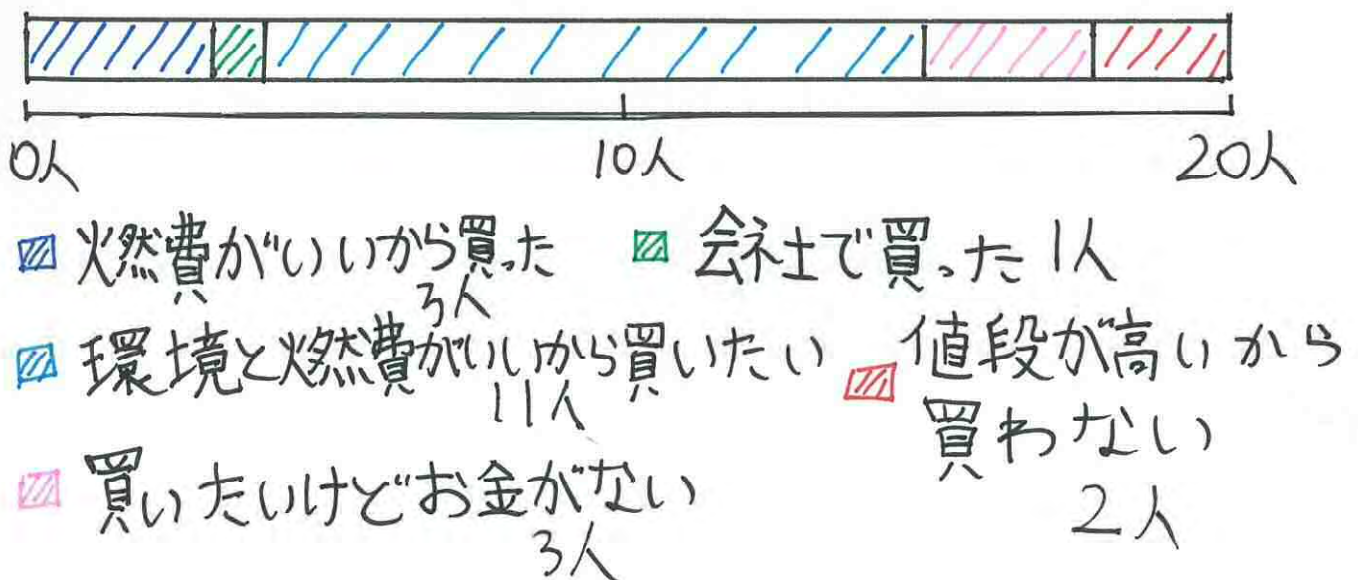 0人 10人 20人
燃費がいいから買った
3人
会社で買った 1人
環境と燃費がいいから買いたい
11人
値段が高いから
買わない
2人
買いたいけどお金がない
3人